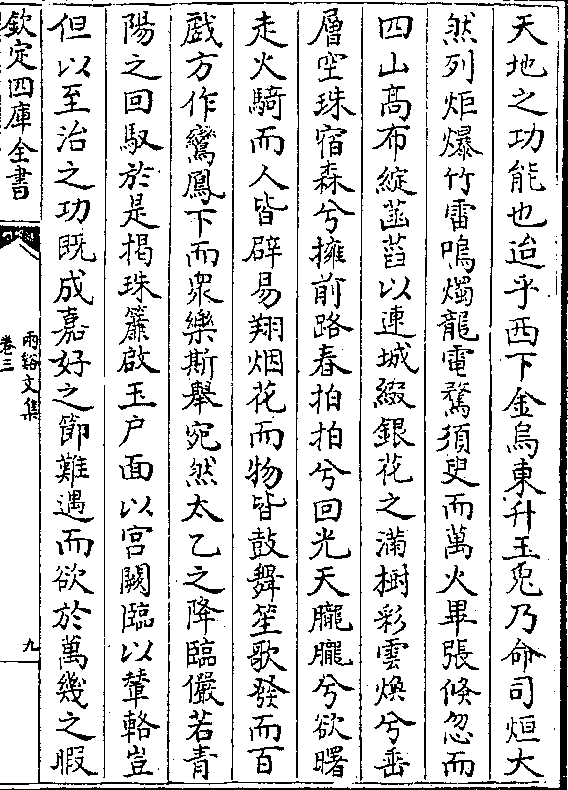 天地之功能也迨乎西下金烏東升玉兎乃命司烜大
然列炬爆竹雷鳴燭龍電騖須臾而萬火畢張倐忽而
四山髙布綻菡萏以連城綴銀花之滿樹彩雲煥兮垂
層空珠宿森兮擁前路春拍拍兮回光天朧朧兮欲曙
走火騎而人皆辟易翔烟花而物皆鼓舞笙歌發而百
戲方作鸞鳳下而衆樂斯舉宛然太乙之降臨儼若青
陽之回馭於是揭珠簾啟玉户面以宫闕臨以輦輅豈
但以至治之功既成嘉好之節難遇而欲於萬幾之暇
欽定四庫全書
兩谿文集
卷三
九